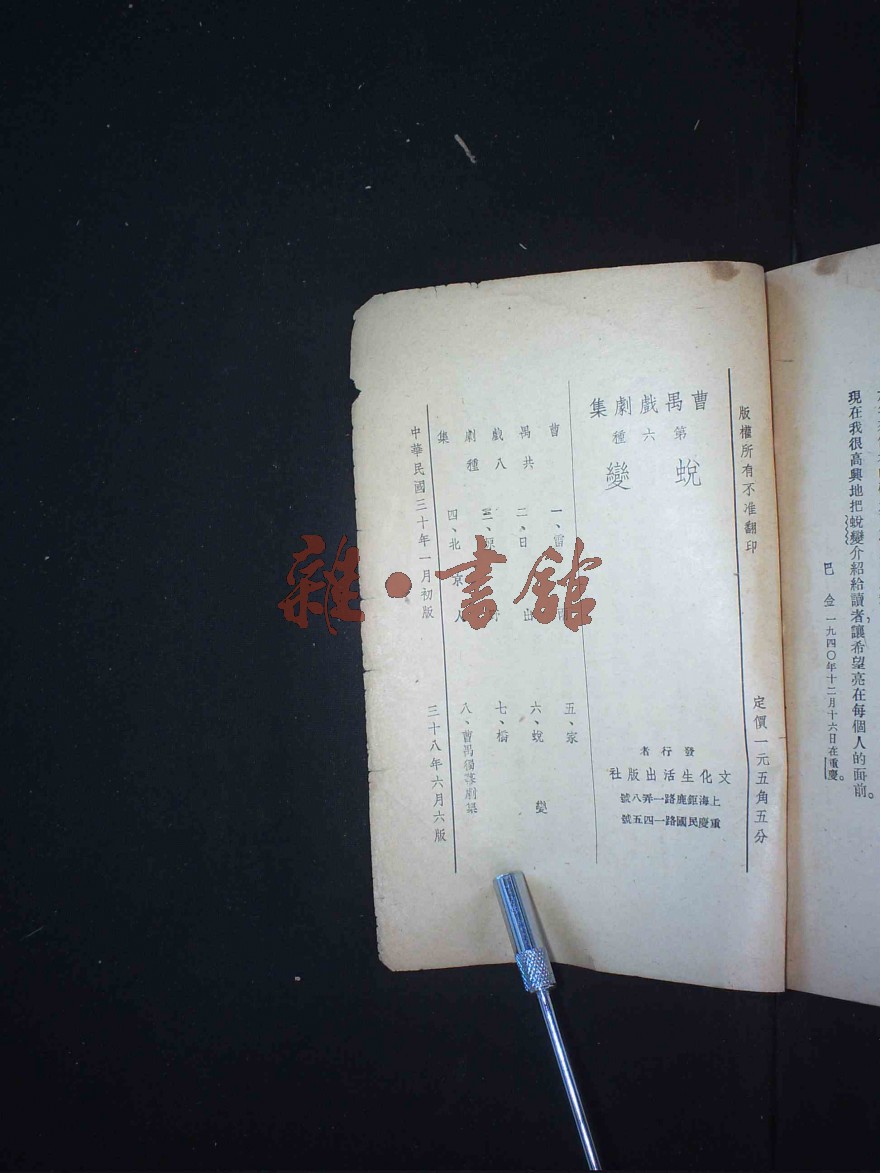 現在我很高興地把蛻變介紹給讀者,讓希望亮在每個人的面前。
巴　金　一九四〇年十二月十六日在重慶。
版權所有不准翻印
定價一元五角五分
曹禺戲劇集
第六種
蛻變
發行者
文化生活出版社
上海鉅鹿路一弄八號
重慶民國路一四五號
曹禺戲劇集
共八種
一、雷雨
二、日出
三、原
四、北京人
五、家
六、蛻變
七、橋
八、曹禺獨幕劇集
中華民國三十年一月初版
三十八年六月六版
雜·書館